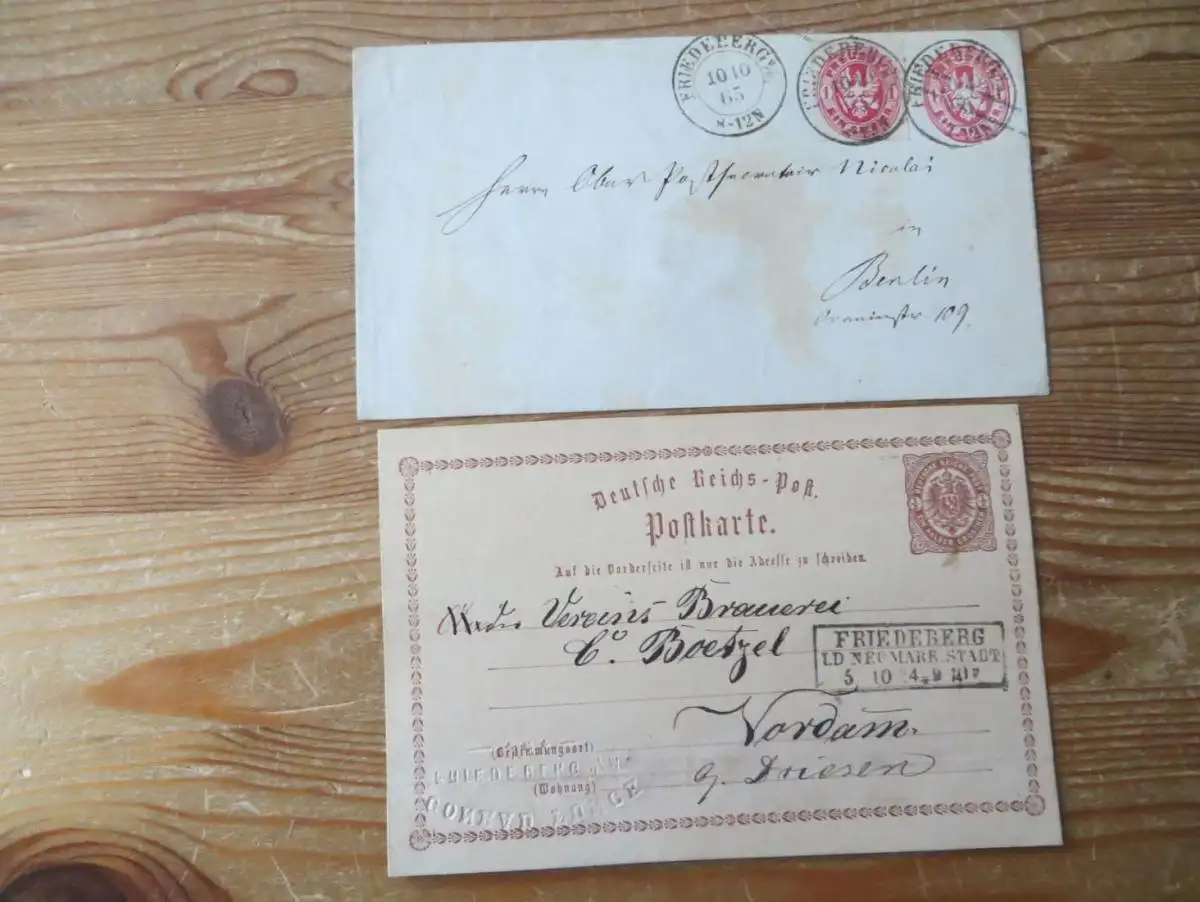 FRIEDEBERG
10 10
65
8-12N
FRIEDEBERG
FRIEDEBERG
1 1
EIN SILB. GR.
Herrn Ober Postsecretair Nicolai
in
Berlin
Oranienstr 109.
Deutsche Reichs-Post.
Postkarte.
Auf die Vorderseite ist nur die Adresse zu schreiben.
Vereins Brauerei
C. Boetzel
FRIEDEBERG
I.D NEUMARK STADT
5 10
Vordam̄.
q. Driesen
(Bestimmungsort)
FRIEDEBERG N/M
(Wohnung)